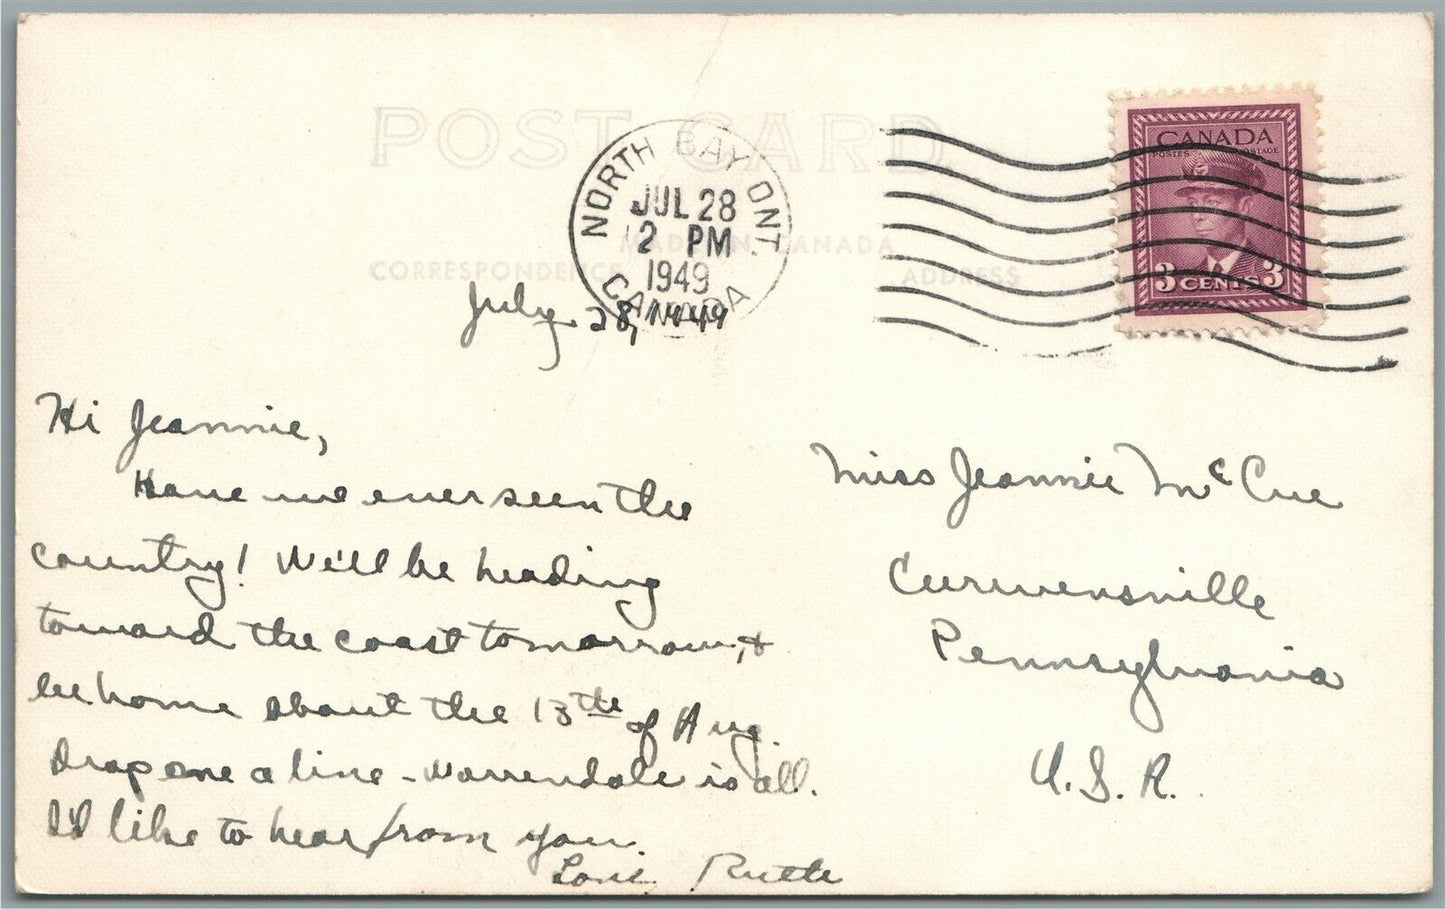 POST CARD
MADE IN CANADA
CORRESPONDENCE ADDRESS
NORTH BAY ONT.
JUL 28
12 PM
1949
CANADA
CANADA
POSTES POSTAGE
3 CENTS 3
July 28, 1949
Hi Jeannie,
Have we ever seen the
country! We'll be heading
toward the coast tomorrow, &
be home about the 13th of Aug.
Drop me a line - Warrendale is all.
I'd like to hear from you.
Love Ruth
Miss Jeannie McCue
Curwensville
Pennsylvania
U.S.A.